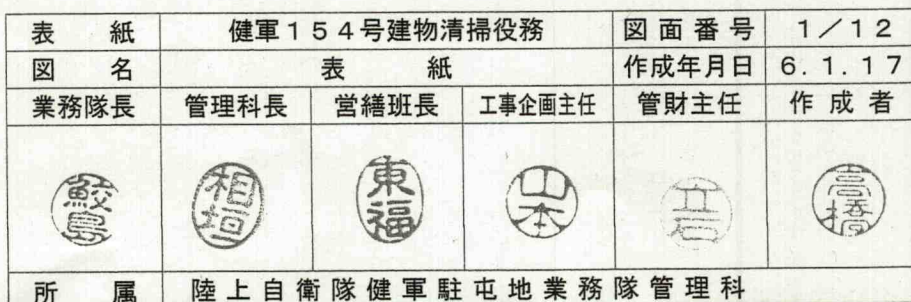 表紙 健軍154号建物清掃役務 図面番号 1/12
図名 表紙 作成年月日 6.1.17
業務隊長 管理科長 営繕班長 工事企画主任 管財主任 作成者
鮫島 相垣 東福 山本 立石 高橋
所属 陸上自衛隊健軍駐屯地業務隊管理科